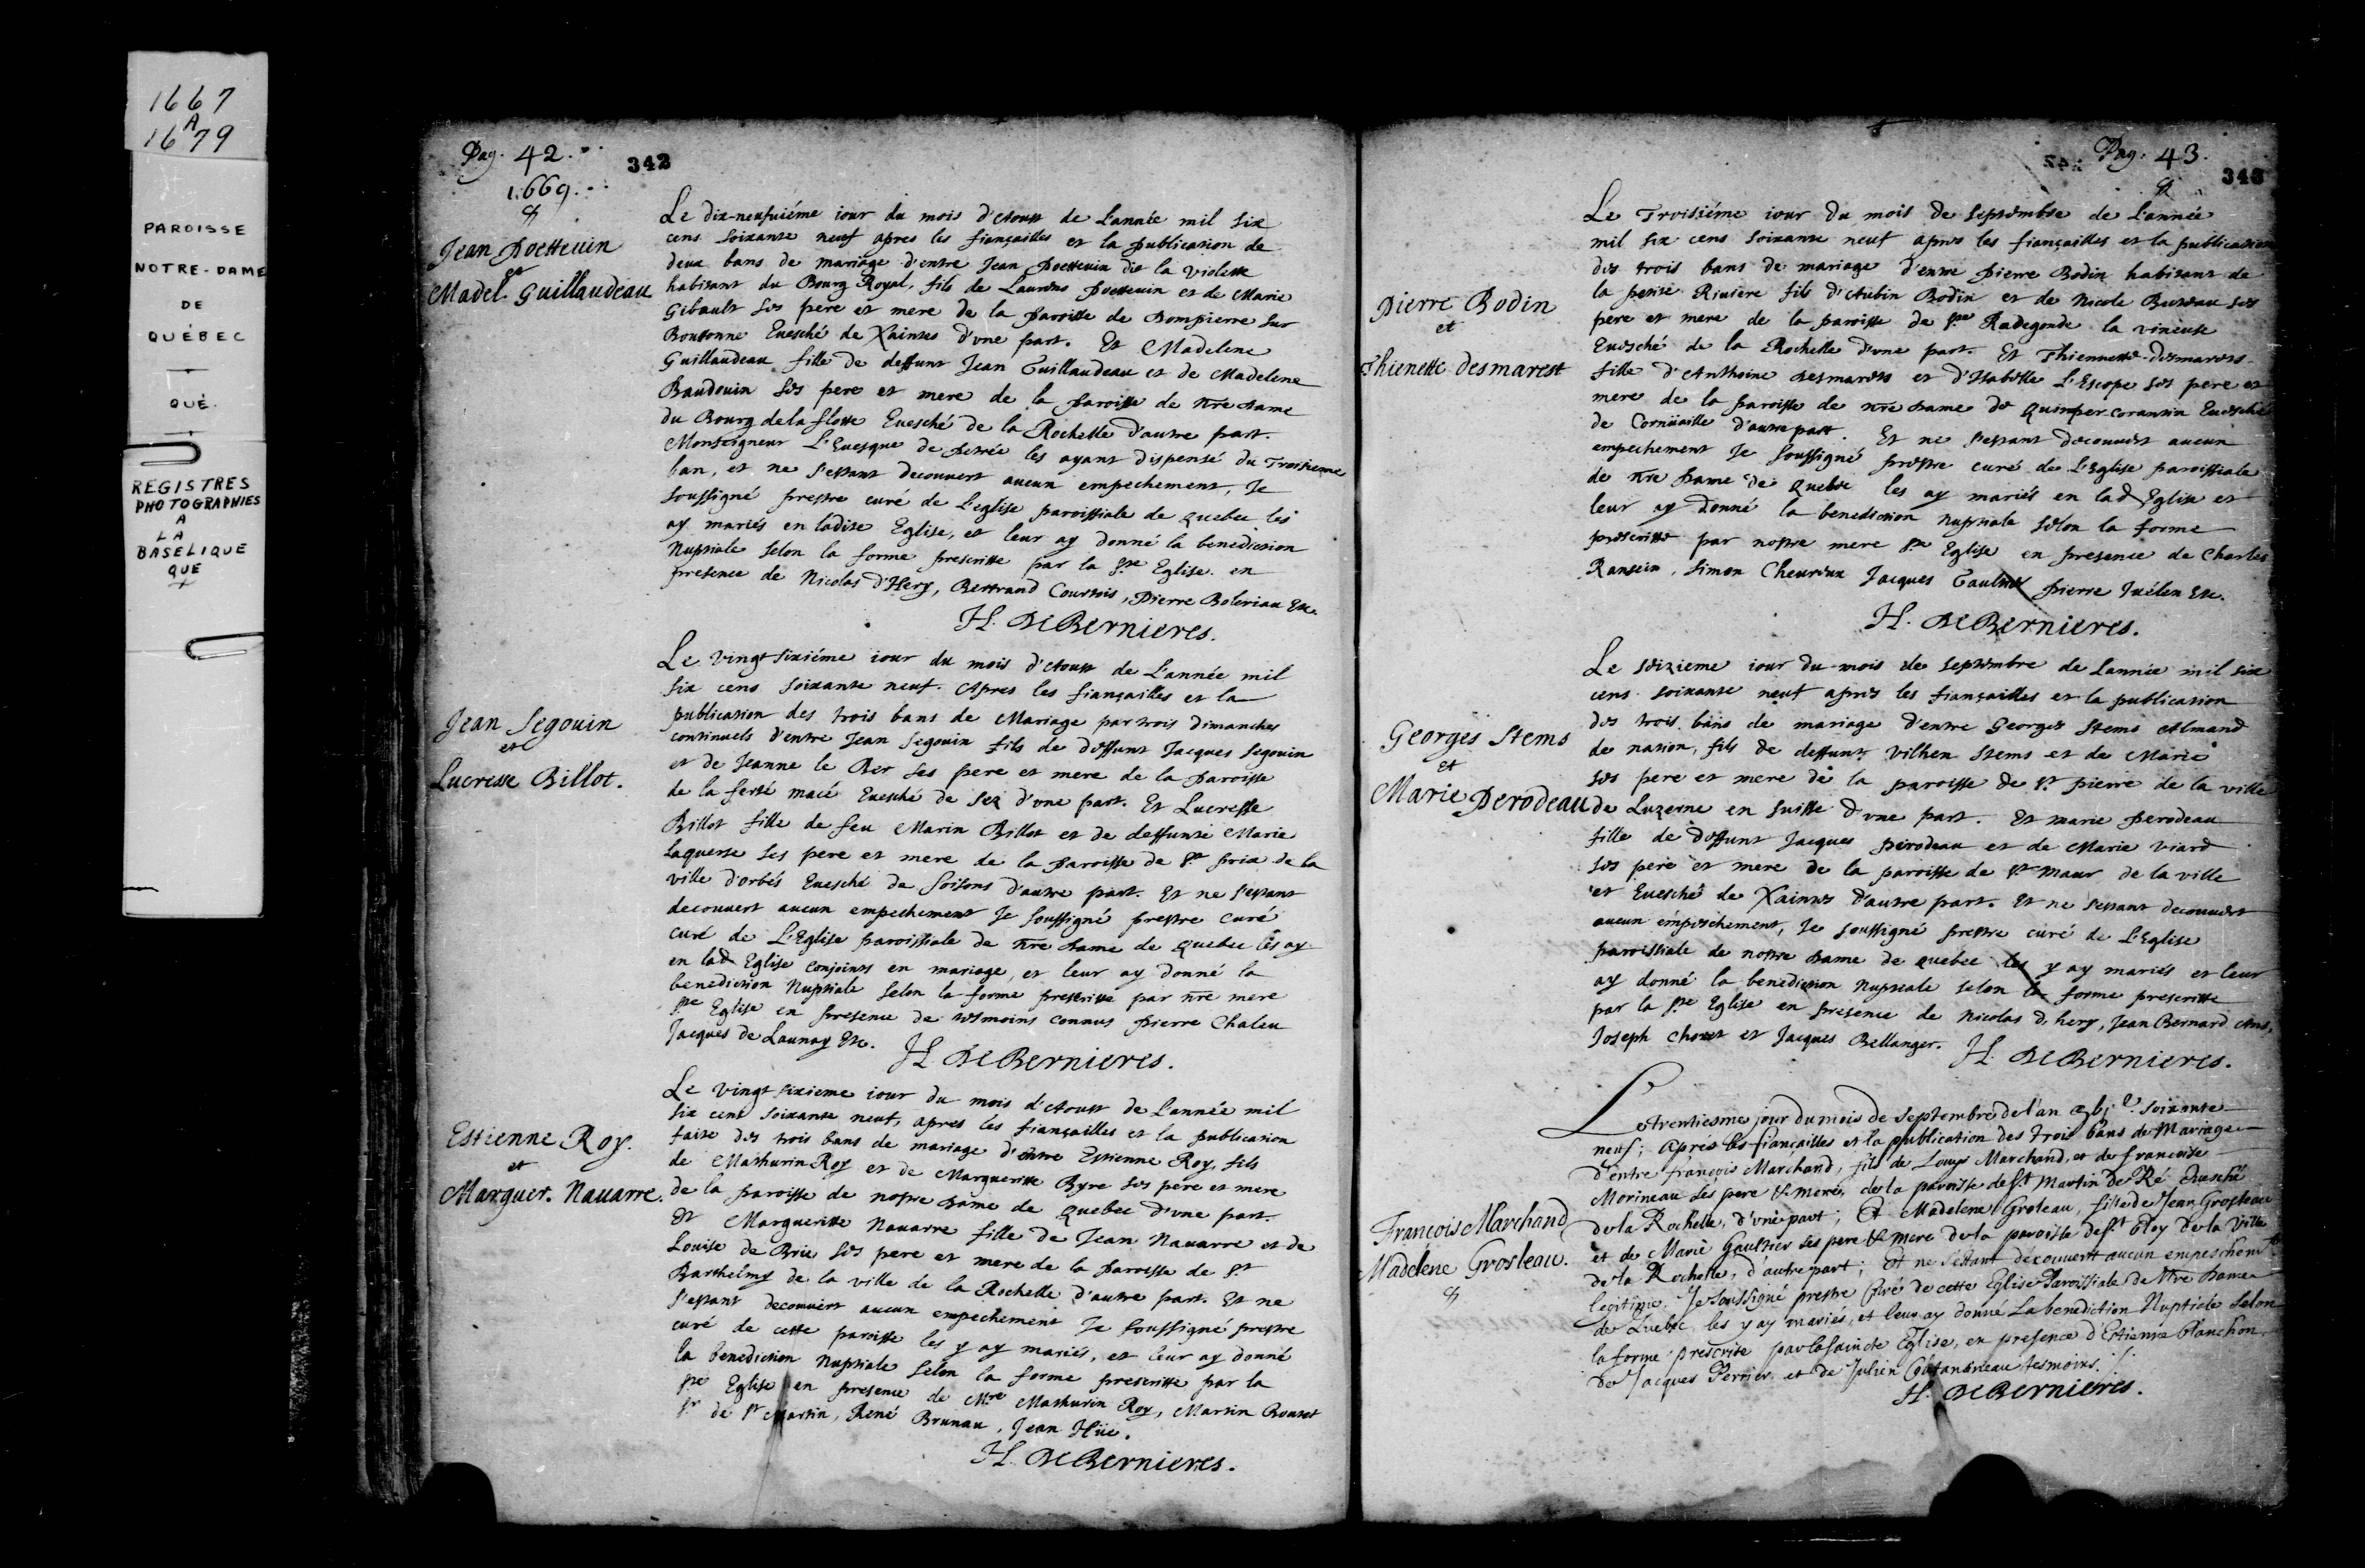 1667
A
1679
PAROISSE
NOTRE-DAME
DE
QUÉBEC
QUÉ.
REGISTRES
PHOTOGRAPHIES
A
LA
BASELIQUE
QUE
Pag. 42.
342
1669.
Jean Poetteuin
et
Madel. Guillaudeau
Le dix-neufuiéme iour du mois d'Aoust de L'année mil six
cens soixante neuf apres les fiançailles et la publication de
deux bans de mariage d'entre Jean Poetteuin dit la Violette
habitant du Bourg Royal, fils de Laurens Poetteuin et de Marie
Gibault ses pere et mere de la Paroisse de Dompierre sur
Boutonne Euesché de Xaintes d'vne part. Et Madelene
Guillaudeau fille de deffunt Jean Guillaudeau et de Madelene
Baudouin ses pere et mere de la Paroisse de nre Dame
du Bourg de la flotte Euesché de la Rochelle d'autre part.
Monseigneur L'Euesque de Petrée les ayant dispensé du Troisieme
ban, et ne s'estant decouuert aucun empechement, Je
soussigné prestre curé de L'eglise paroissiale de Quebec les
ay mariés en ladite Eglise, et leur ay donné la benediction
Nuptiale selon la forme prescritte par la Ste Eglise. en
presence de Nicolas d'Hery, Bertrand Courtois, Pierre Boleriau Etc.
H. DeBernieres.
Jean Segouin
et
Lucresse Billot.
Le vingt sixiéme iour du mois d'Aoust de L'année mil
six cens soixante neuf. Apres les fiançailles et la
publication des trois bans de Mariage par trois dimanches
continuels d'entre Jean Segouin fils de deffunt Jacques Segouin
et de Jeanne le Ber ses pere et mere de la Paroisse
de la ferté macé Euesché de Sez d'vne part. Et Lucresse
Billot fille de feu Marin Billot et de deffunte Marie
Laquerse ses pere et mere de la Paroisse de St prix de la
ville d'orbés Euesché de soisons d'autre part. Et ne s'estant
decouuert aucun empechement Je soussigné prestre curé
curé de L'Eglise paroissiale de nre Dame de Quebec les ay
en lad Eglise conjoints en mariage, et leur ay donné la
benediction Nuptiale selon la forme prescritte par nre mere
Ste Eglise en presence de tesmoins connus pierre Chaleu
Jacques de Launay Etc. H. DeBernieres.
Estienne Roy.
et
Marguer. Nauarre.
Le vingt sixieme iour du mois d'Aoust de L'année mil
six cens soixante neuf, apres les fiançailles et la publication
faite des trois bans de mariage d'entre Estienne Roy, fils
de Mathurin Roy et de Margueritte Byre ses pere et mere
de la paroisse de nostre Dame de Quebec d'vne part.
Et Margueritte Nauarre fille de Jean Nauarre et de
Louise de Brie ses pere et mere de la Paroisse de St
Barthelmy de la ville de la Rochelle d'autre part. Et ne
s'estant decouuert aucun empechement Je soussigné prestre
curé de cette paroisse les y ay mariés, et leur ay donné
la benediction Nuptiale selon la forme prescritte par la
Ste Eglise en presence de Mtre Mathurin Roy, Martin Boutet
Sr de St Martin, René Brunau, Jean Hüe.
H. DeBernieres.
Pag. 43.
343
Pierre Bodin
et
Thienette desmarest
Le Troisiéme iour du mois de Septembre de L'année
mil six cens soixante neuf apres les fiançailles et la publication
des trois bans de mariage d'entre Pierre Bodin habitant de
la petite Riuiere fils d'Aubin Bodin et de Nicole Bureau ses
pere et mere de la paroisse de Ste Radegonde la vineuse
Euesché de la Rochelle d'vne part. Et Thiennette desmarets
fille d'Anthoine desmarets et d'Isabelle L'Escope ses pere et
mere de la paroisse de nre Dame de Quimper corantin Euesché
de Cornüaille d'autre part. Et ne s'estant decouuert aucun
empechement Je soussigné prestre curé de L'Eglise paroissiale
de nre Dame de Quebec les ay mariés en lad Eglise et
leur ay donné la benediction nuptiale selon la forme
prescritte par nostre mere Ste Eglise en presence de Charles
Simon Cheureux Jacques pierre Etc.
H. DeBernieres.
Georges Stems
et
Marie Perodeau
Le seizieme iour du mois de Septembre de Lannée mil six
cens soixante neuf apres les fiançailles et la publication
des trois bans de mariage d'entre Georges Stems Almand
de nation, fils de deffunt Vilhen Stems et de Marie
ses pere et mere de la paroisse de St pierre de la ville
de Luzerne en suisse d'vne part. Et marie Perodeau
fille de deffunt Jacques Perodeau et de Marie viard
ses pere et mere de la paroisse de St Maur de la ville
et Euesché de Xaintes d'autre part. Et ne s'estant decouuert
aucun empeschement, Je soussigné prestre curé de L'Eglise
paroissiale de nostre Dame de Quebec les y ay mariés et leur
ay donné la benediction nuptiale selon la forme prescritte
par la Ste Eglise en presence de Nicolas d'hery, Jean Bernard Ans,
Joseph et Jacques Bellanger. H. DeBernieres.
François Marchand
Madelene Grosleau.
Le trentiesme jour du mois de Septembre de l'an soixante
neuf; apres les fiançailles et la publication des trois bans de Mariage
d'entre françois Marchand, fils de Louys Marchand, et de francoise
Morineau ses pere & mere, de la paroisse de St Martin de Ré Euesché
de la Rochelle, d'vne part; Et Madelene Groleau, fille de Jean Grosleau
et de Marie Gaultier ses pere & mere de la paroisse de St Eloy de la ville
de la Rochelle, d'autre part; Et ne s'estant decouuert aucun empeschemt
legitime, Je soussigné prestre Curé de cette Eglise Paroissiale de Nre Dame
de Quebec les y ay mariés, et leur ay donné La benediction Nuptiale selon
la forme prescrite par la saincte Eglise, en presence d'Estienne blanchon,
de Jacques Perrier et de Julien tesmoins.
H. DeBernieres.